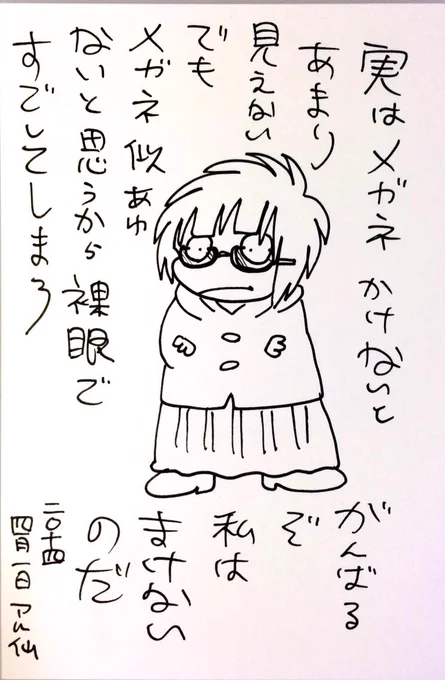 実はメガネかけないと
あまり
見えない
でも
メガネ似あわ
ないと思うから裸眼で
すごしてしまう
がんばる
ぞ
私は
まけない
のだ
二〇十四
四月一日 アル仙